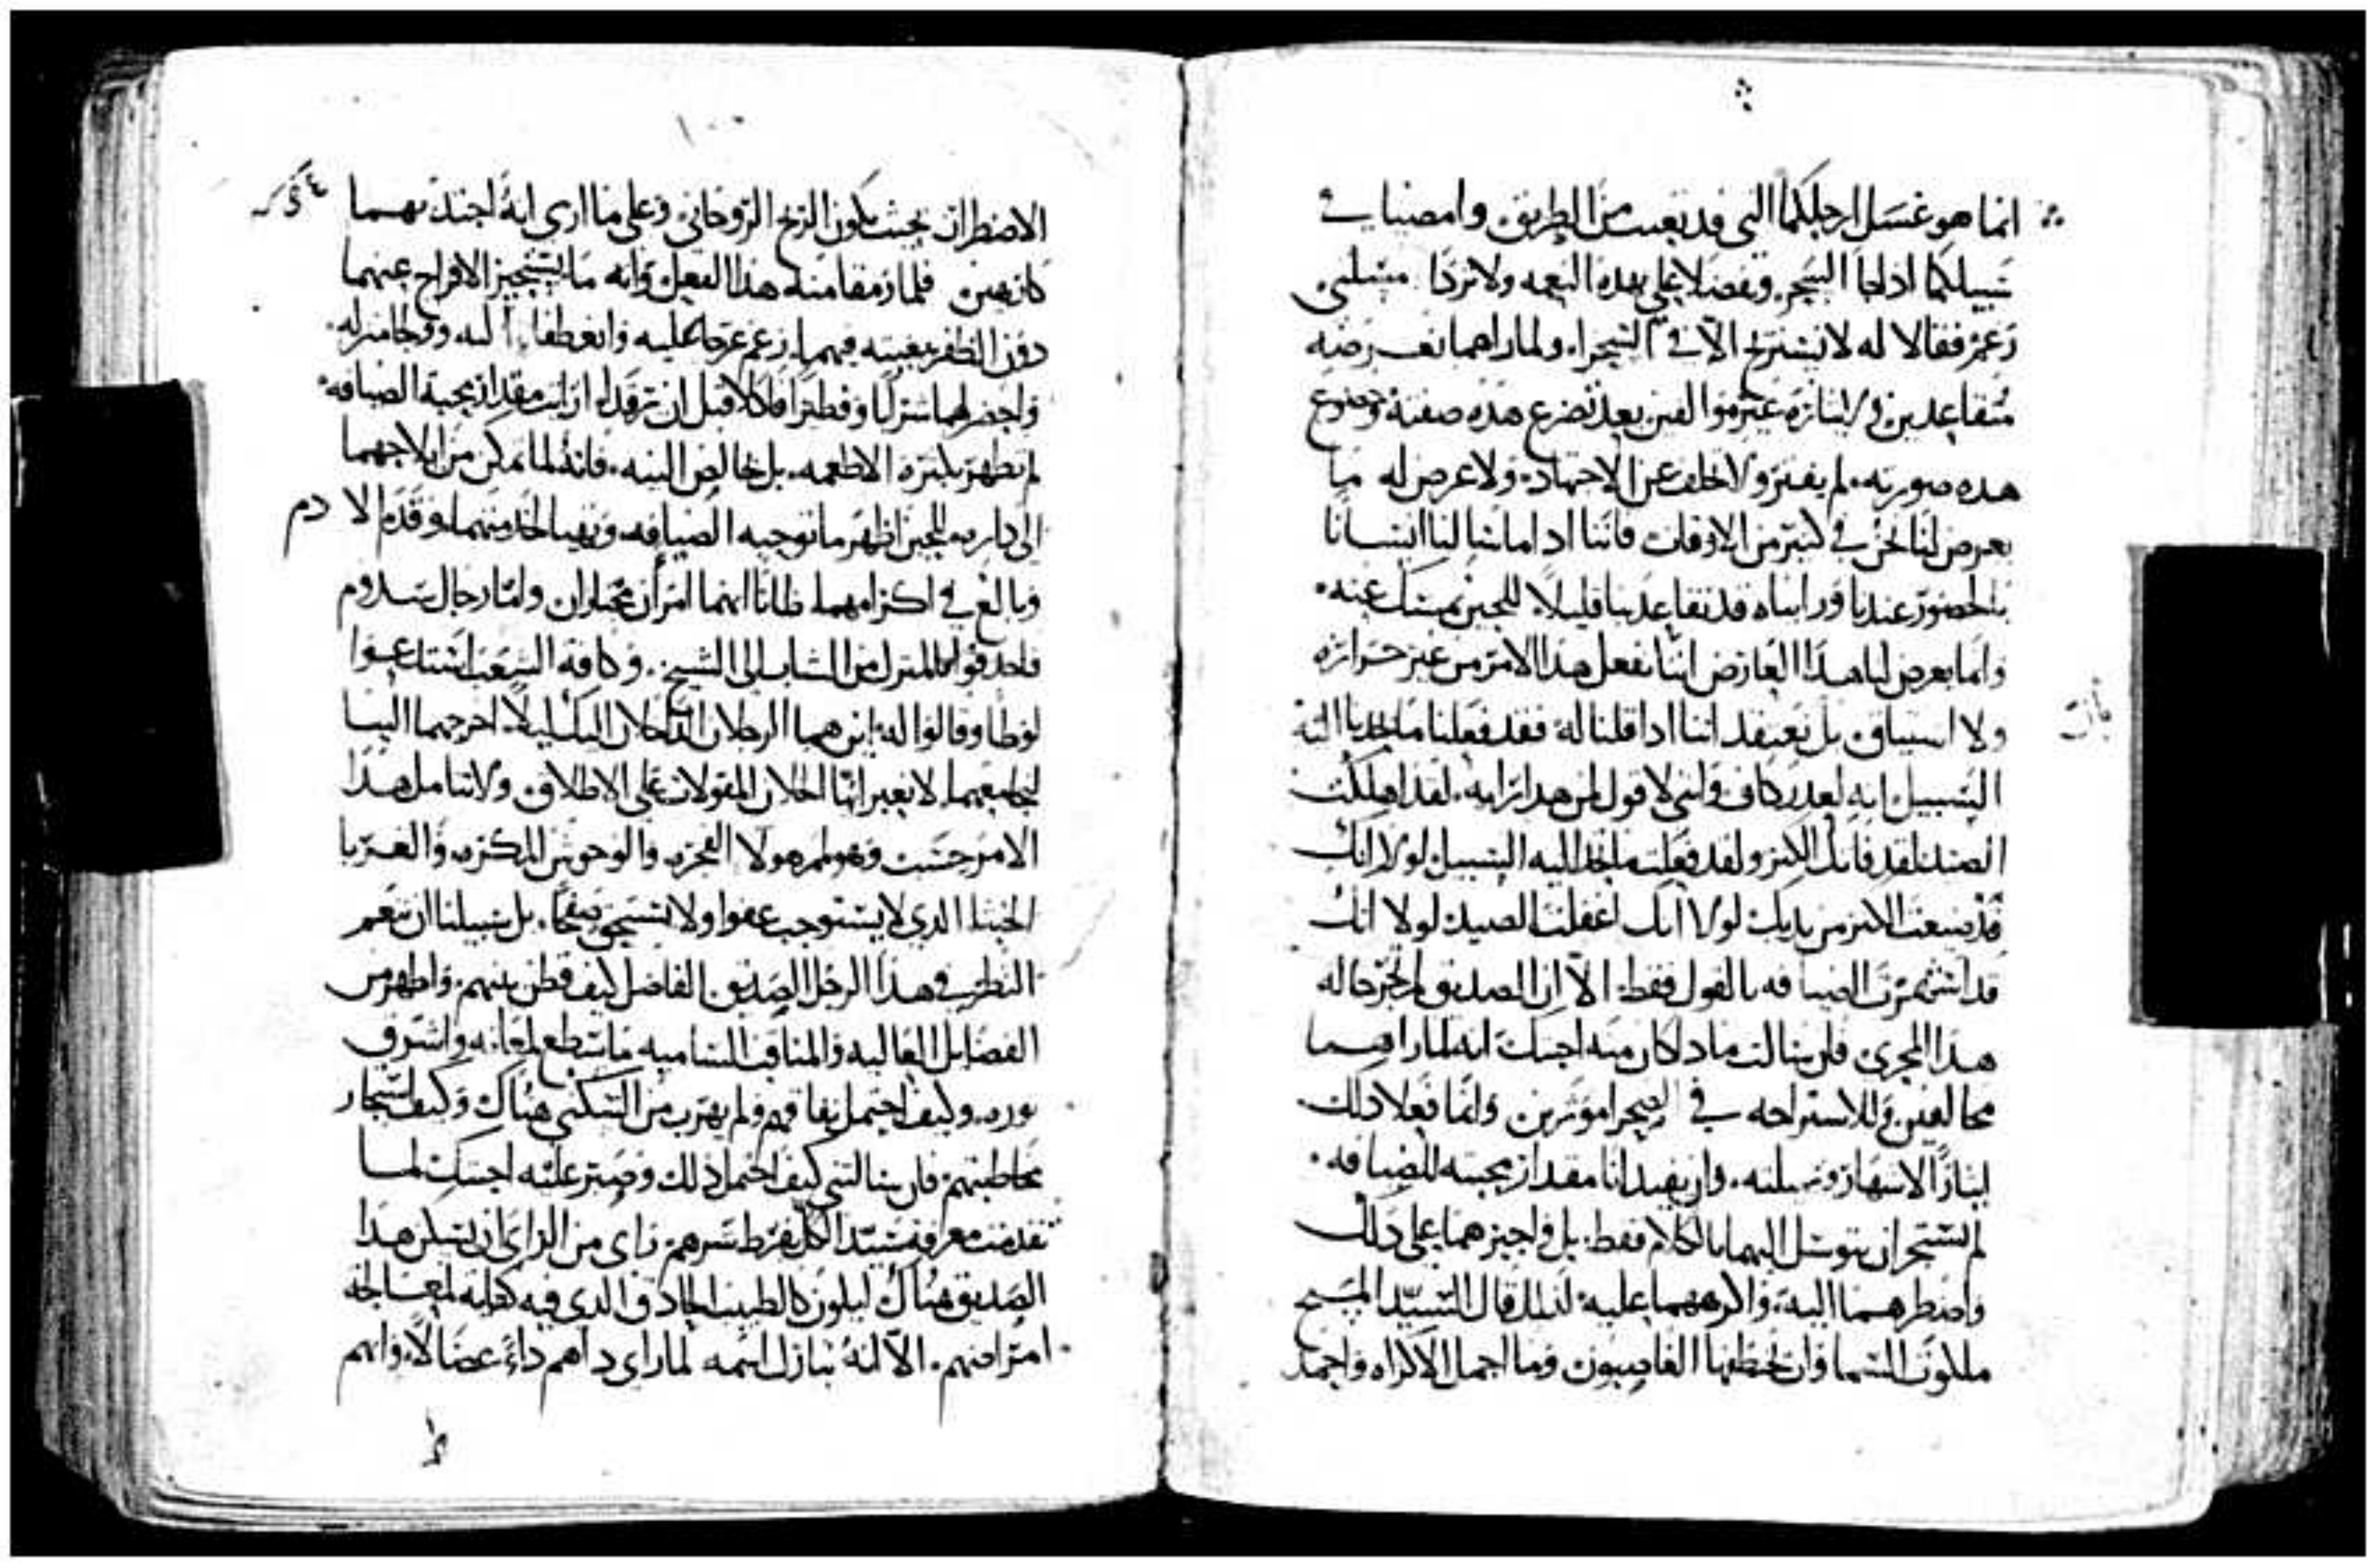 انما هو غسل ارجلكما التي قد تعبت من الطريق وامضيا في
سبيلكما ادلجا السحر وتفضلا علي بهذه النعمه ولا تردا مسلتي
زعم فقالا له لا نستريح الا في الصحراء ولما راهما
متقاعدين في ايثاره غير موافقين بعد تضرع هذه صفته وخضوع
هذه صورته لم يفتر ولا تخلف عن الاجتهاد ولا عرض له ما
يعرض لنا نحن في كثير من الاوقات فاننا اذا ما سالنا انسانا
بالحضور عندنا ورايناه قد تقاعد بنا قليلا للحين نمسك عنه
وانما يعرض لنا هذا العارض اننا نفعل هذا الامر من غير حراره
ولا اشتياق بل نعتقد اننا اذا قلنا له فقد فعلنا ما يحدنا اليه
السبيل انه لعذر كاف وانني لاقول لمن هذا رايه لقد اهلكت
الصيد لقد فاتك الكنز ولقد فعلت ما تجد اليه السبيل لولا انك
قد ضيعت الكنز من يديك لولا انك اغفلت الصيد لولا انك
قد استثمرت الضيافه بالقول فقط الا ان الصديق لم تجر حاله
هذا المجري فان سالت ماذا كان منه اجبتك انه لما راهما
مخالفين وللاستراحه في الصحرا موثرين وانما فعلا ذلك
ايثارا لاشهار فضيلته وان يفيدانا مقدار محبته للضيافه
لم يستجز ان يتوسل اليهما بالكلام فقط بل واجبرهما على ذلك
واضطرهما اليه واكرههما عليه لذلك قال السيد المسيح
ملكوت السما وان يخطفها الغاصبون وما اجمل الاكراه واحمد
١٠٠
الاضطرار بحيث يكون الربح الروحاني وعلى ما ارى انه اجتذبهما
كارهين فلما رمقا منه هذا الفعل وانه ما يستجيز الافراج عنهما
دون الظفر ببغيته فيهما زعم عرجا عليه وانعطفا اليه وولجا منزله
واحضر لهما شرابا وفطيرا فاكلا قبل ان يرقدا ارايت مقدار محبة الضيافه
لم تظهر بكثرة الاطعمه بل بخالص النيه فانه لما تمكن من ايلاجهما
الى داره للحين اظهر ما توجبه الضيافه وتهيا لخدمتهما وقدم الادم
وبالغ في اكرامهما ظانا انهما امران مجتازان واما رجال سدوم
فاحدقوا بالمنزل من الشاب الى الشيخ وكافة الشعب استدعوا
لوطا وقالوا له اين هما الرجلان الداخلان اليك ليلا اخرجهما الينا
لنجامعهما لا نعبر ايها الخلان المقولات على الاطلاق ولا نتامل هذا
الامر حسب وهو لمز هولا الفجره والوحوش المكره والغربا
الخبثا الذي لا يستوجب عفوا ولا يستحق صفحا بل سبيلنا ان ننعم
النظر في هذا الرجل الصديق الفاضل كيف قطن بينهم واظهر من
الفضايل العاليه والمناقب الساميه ما سطع لمعانه واشرق
نوره وكيف احتمل نفاقهم ولم يهرب من السكنى هناك وكيف استجاز
مخاطبتهم فان سالتني كيف احتمل ذلك وصبر عليه اجبتك لما
تقدمت معرفة سيد الكل بفرط شرهم راى من الراى ان يسكن هذا
الصديق هناك ليكون كالطبيب الحاذق الذي فيه كفايه لمعالجة
امراضهم الا انه تبارك اسمه لما راى داهم داءً عضالا وانهم